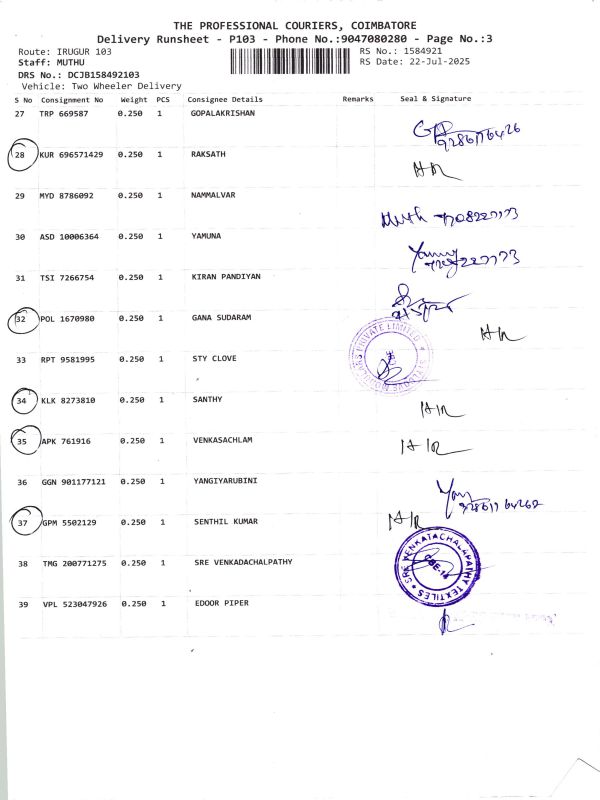 THE PROFESSIONAL COURIERS, COIMBATORE
Delivery Runsheet - P103 - Phone No.:9047080280 - Page No.:3
Route: IRUGUR 103
RS No.: 1584921
Staff: MUTHU
RS Date: 22-Jul-2025
DRS No.: DCJB158492103
Vehicle: Two Wheeler Delivery
S No Consignment No Weight PCS Consignee Details Remarks Seal & Signature
27 TRP 669587 0.250 1 GOPALAKRISHAN
28 KUR 696571429 0.250 1 RAKSATH
29 MYD 8786092 0.250 1 NAMMALVAR
30 ASD 10006364 0.250 1 YAMUNA
31 TSI 7266754 0.250 1 KIRAN PANDIYAN
32 POL 1670980 0.250 1 GANA SUDARAM
33 RPT 9581995 0.250 1 STY CLOVE
PRIVATE LIMITED
34 KLK 8273810 0.250 1 SANTHY
35 APK 761916 0.250 1 VENKASACHLAM
36 GGN 901177121 0.250 1 YANGIYARUBINI
37 GPM 5502129 0.250 1 SENTHIL KUMAR
38 TMG 200771275 0.250 1 SRE VENKADACHALPATHY
SRE VENKATACHALAPATHY TEXTILES
39 VPL 523047926 0.250 1 EDOOR PIPER